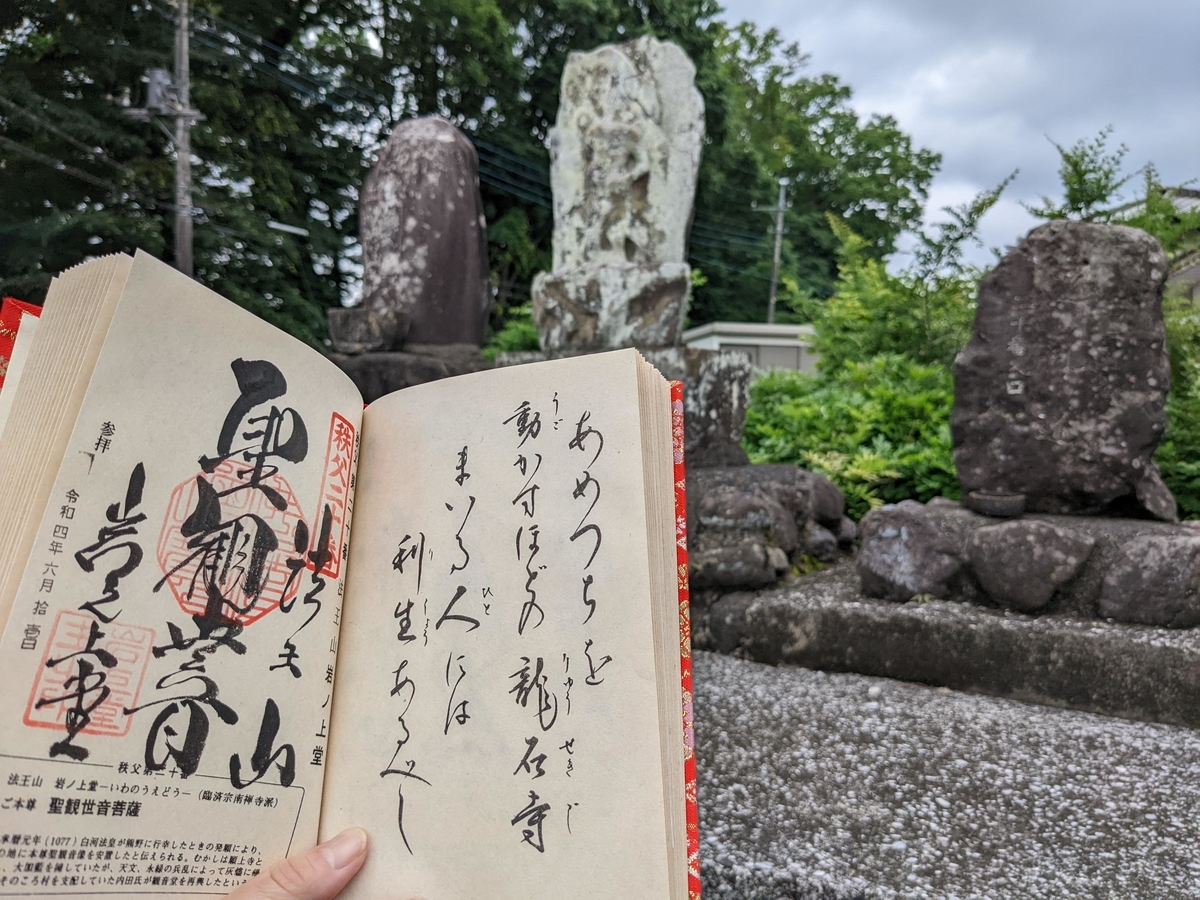 あめつちを
動かすほどの龍石寺
うご
りゅうせきじ
まいる人には
ひと
利生あるべし
り しょう
法王山岩ノ上堂
法王山
聖観世音
岩之上堂
参拝
令和四年六月拾壱日
法王山 岩ノ上堂―いわのうえどう―(臨済宗南禅寺派)
ご本尊 聖観世音菩薩
暦元年(1077)白河法皇が熊野に行幸したときの発願により、
地に本尊聖観音像を安置したと伝えられる。むかしは願上寺と
、大伽藍を擁していたが、天文、永禄の兵乱によって灰燼に
そのころ村を支配していた内田氏が観音堂を再興したという